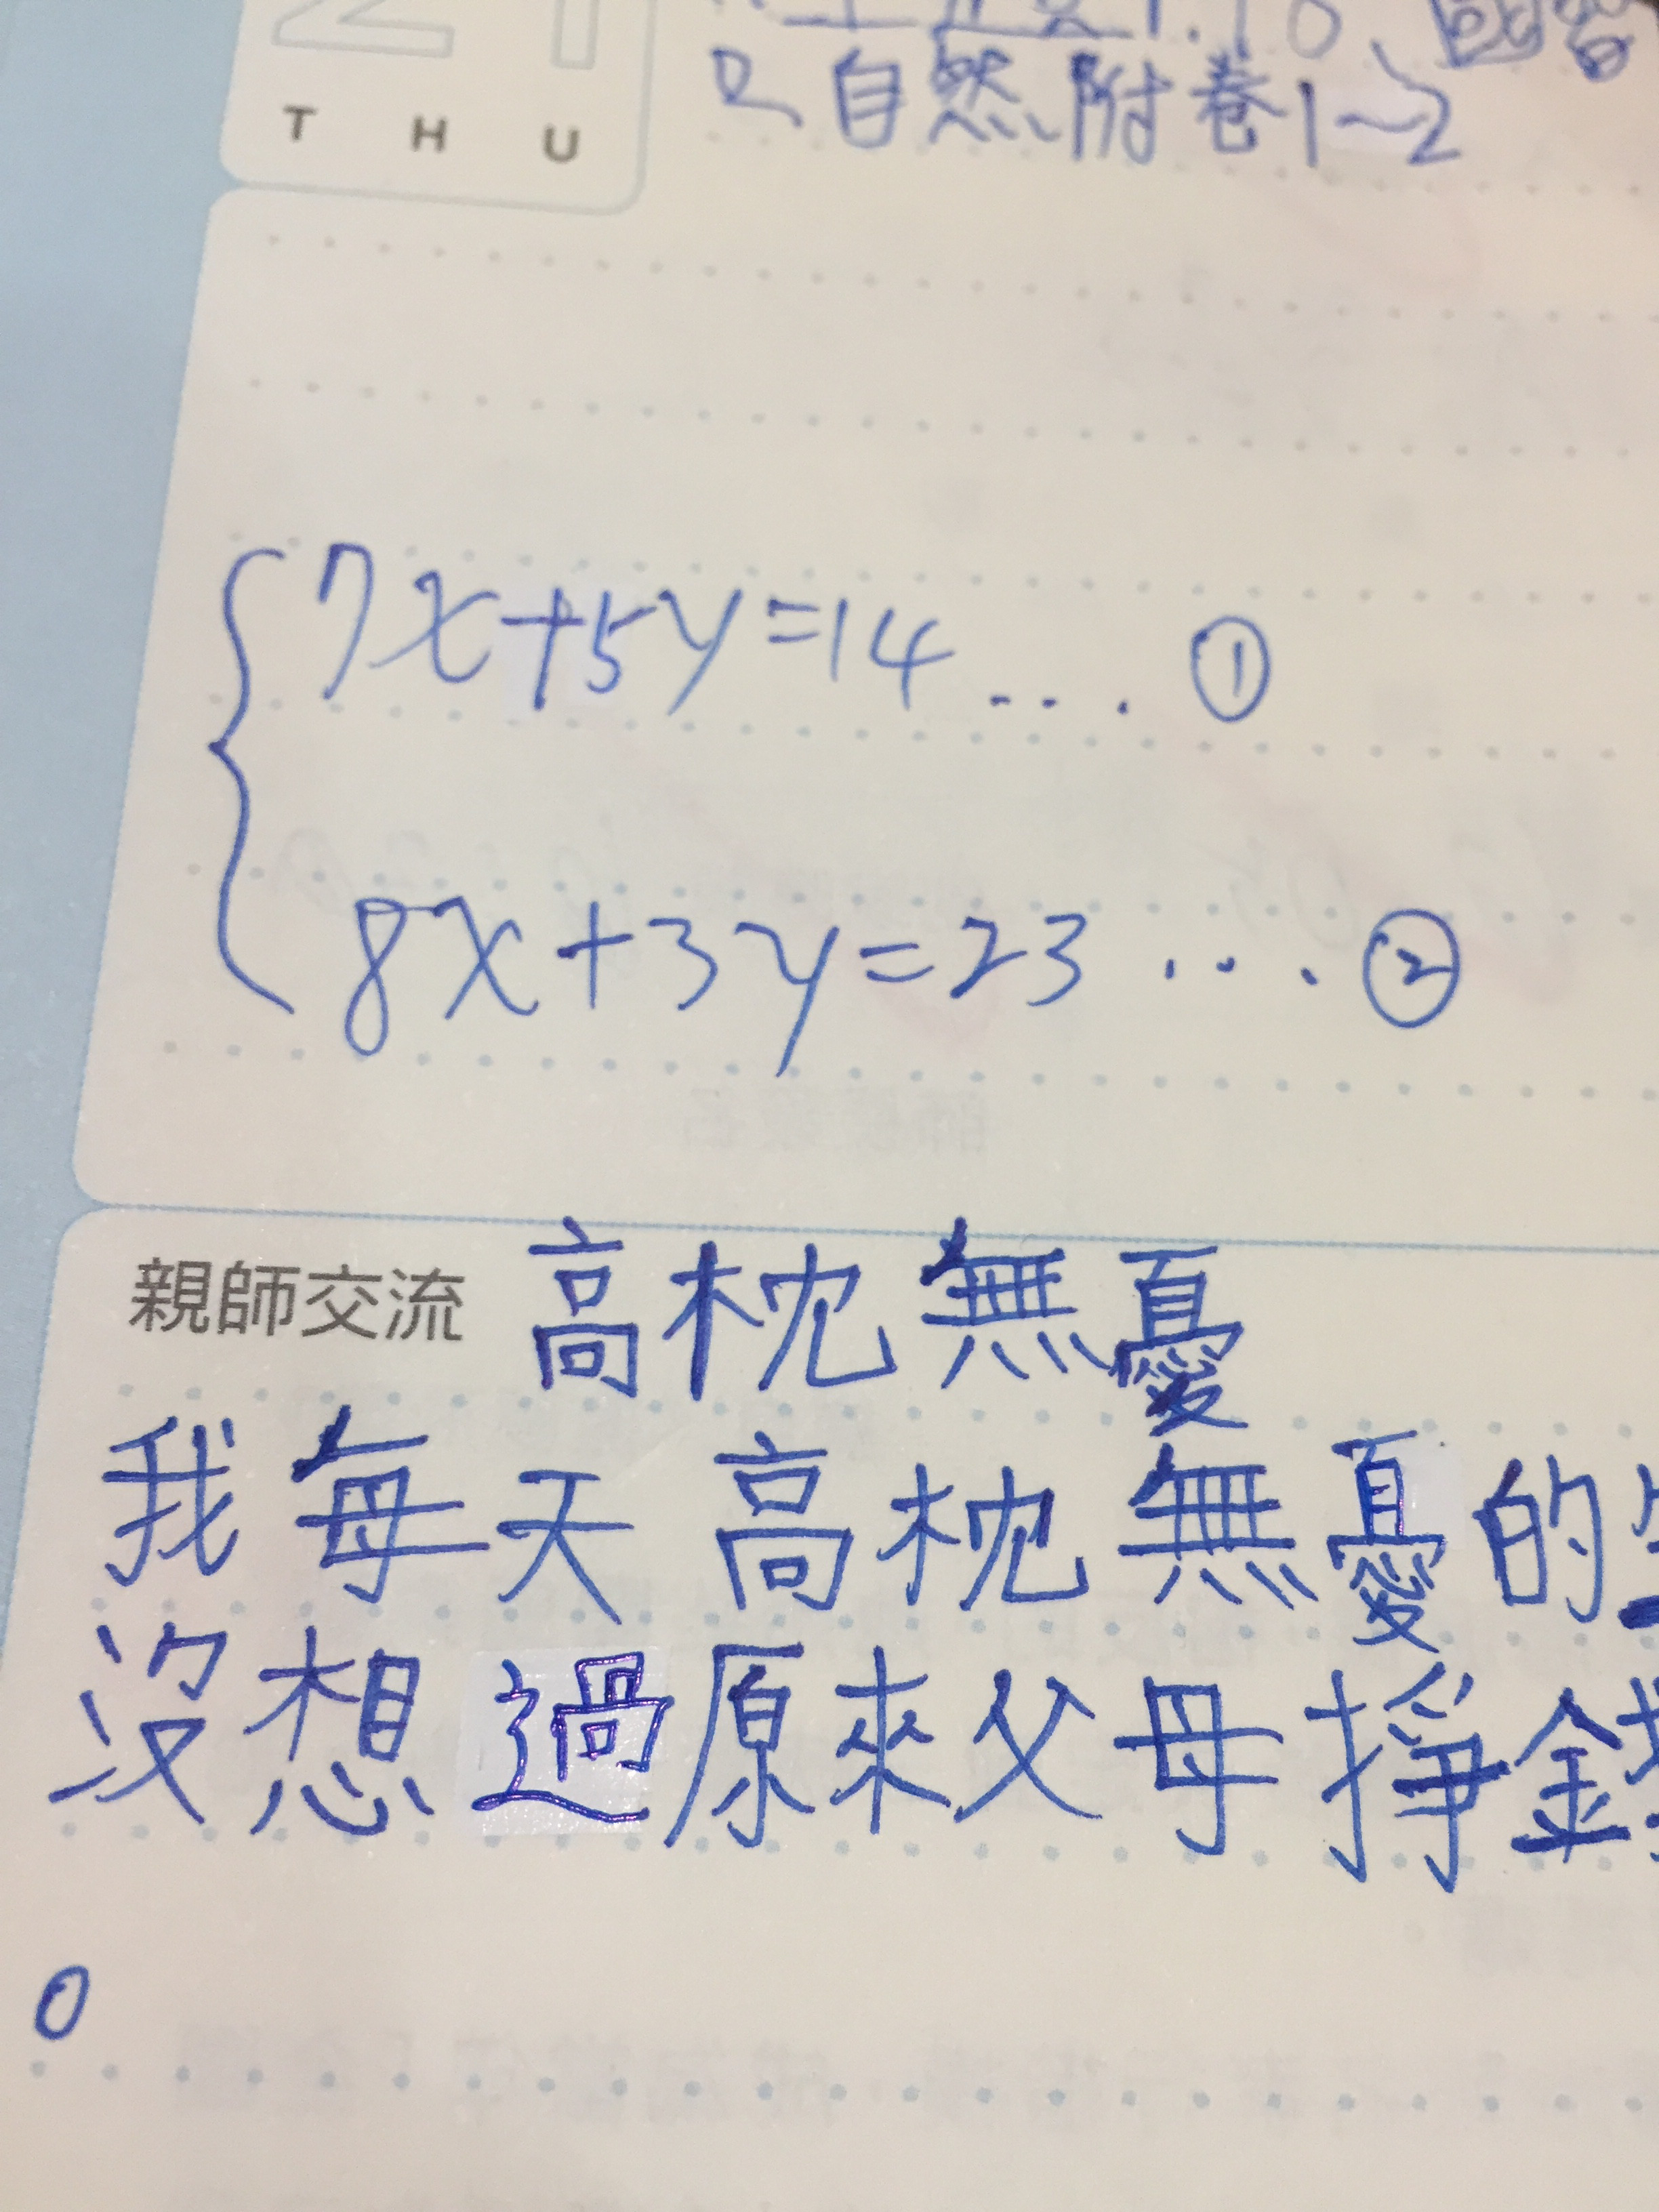 21
THU
2、自然附卷1~2
7x+5y=14...①
8x+3y=23...②
親師交流 高枕無憂
我每天高枕無憂的
沒想過原來父母掙金
。